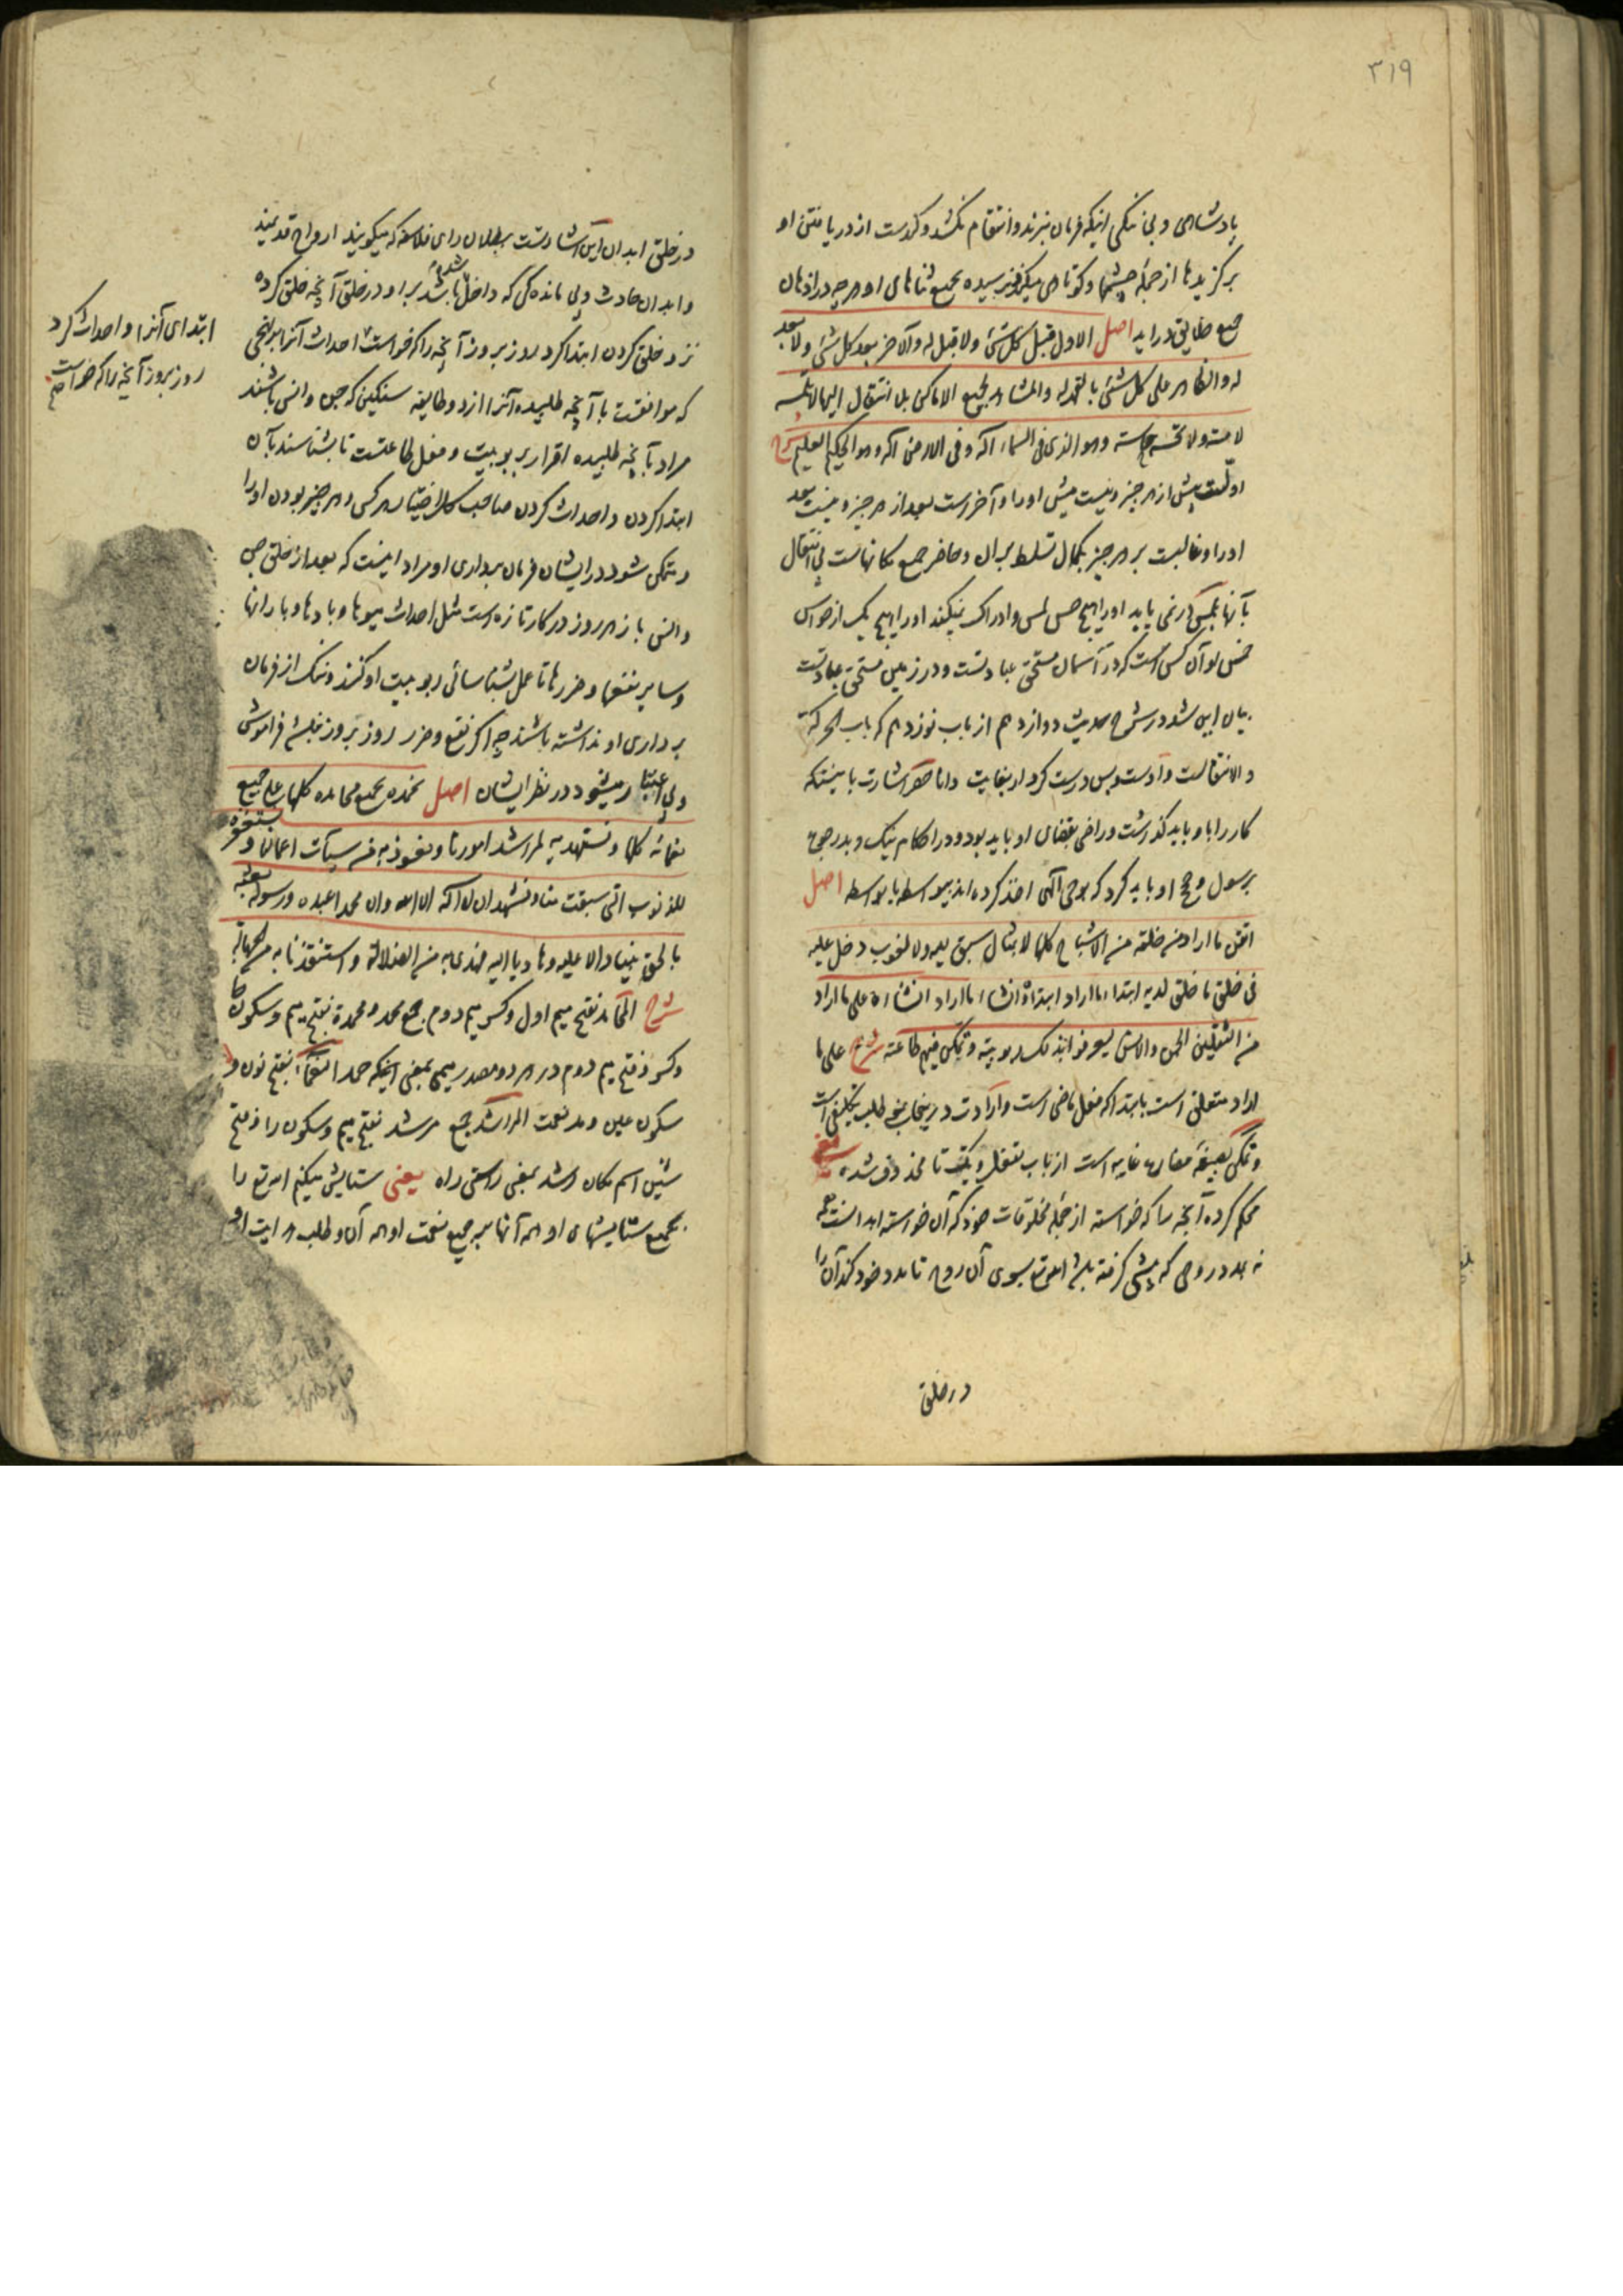 ۳۱۹
پادشاهی و بی ننگی اینکه فرمان نبرند و انتقام نکشد و کندست از دریافتن او
برگزیدها از جمله چشمها و کوتاهی میکند رسیده بجمیع ثناهای او هر چه در اذهان
جمیع خلایق در اید اصل الاول قبل کل شئ ولا قبل له والآخر بعد کل شئ ولا بعد
له والظاهر علی کل شئ بالقهر له والمشاهد لجمیع الاماکن بلا انتقال الیها لا تلمسه
لامسة ولا تحسه حاسة وهو الذی فی السماء اله وفی الارض اله وهو الحکیم العلیم شرح
اولست پیش از هر چیز و نیست پیش او را و آخرست بعد از هر چیز و نیست بعد
او را و غالبست بر هر چیز بکمال تسلط بر آن و حاضر جمیع مکانهاست بی انتقال
بآنها بلمس در نمی یابد او را هیچ حس لمس و ادراک نمیکند او را هیچ یک از حواس
خمس و او آن کس است که در آسمان مستحق عبادتست و در زمین مستحق عبادتست
بیان این شد در شرح حدیث دوازدهم از باب نوزدهم که باب الحرکة
والانتقالست و اوست و بس درست کردار بغایت دانا حصر اشارت باینستکه
کار را باو باید گذاشت و راضی بقضای او باید بود و در احکام نیک و بد رجوع
برسول و حجج او باید کرد که بوحی الهی اخذ کرده اند بیواسطه یا بواسطه اصل
اتقن ما اراد من خلقه من الاشباح کلها لا بمثال سبق الیه ولا لغوب دخل علیه
فی خلق ما خلق لدیه ابتدا ما اراد ابتداءه وانشا ما اراد انشاءه علی ما اراد
من الثقلین الجن والانس لیعرفوا بذلک ربوبیته وتمکن فیهم طاعته شرح علی ما
اراد متعلق است بابتدا که فعل ماضی است و ارادت در اینجا بمعنی طلب تکلیفی است
و تمکن بصیغه مضارع غایبه است از باب تفعل و یک تا محذوف شده یعنی
محکم کرده آنچه را که خواسته از جمله مخلوقات خود که آن خواسته ابدانست همه
نه بمدد روحی که پیشی گرفته باشد الله تع بسوی آن روح تا مدد خود کند آن را
در خلق
در خلق ابدان این اشارتست ببطلان رای فلاسفه که میگویند ارواح قدیمند
و ابدان حادث و بی ماندگی که داخل شده باشد بر او در خلق آنچه خلق کرده
نزد خلق کردن ابتدا کرد روز بروز آنچه را که خواست احداث آنرا بر نهجی
که موافقست با آنچه طلبیده آنرا از دو طایفه سنگین که جن و انس باشند
مراد بآنچه طلبیده اقرار بربوبیت و فعل طاعتست تا بشناسند بآن
ابتدا کردن و احداث کردن صاحب کل اختیار هر کس و هر چیز بودن او را
و متمکن شود در ایشان فرمان برداری او مراد اینست که بعد از خلق جن
و انس باز هر روز در کار تازه است مثل احداث میوها و بادها و بارانها
و سایر نفعها و ضررها تا عمل بشناسائی ربوبیت او کنند و ننگ از فرمان
برداری او نداشته باشند چه اگر نفع و ضرر روز بروز نباشد فراموش
و بی اعتبار میشود در نظر ایشان اصل نحمده بجمیع محامده کلها علی جمیع
نعمائه کلها ونستهدیه لمراشد امورنا ونعوذ به من سیئات اعمالنا ونستغفره
للذنوب التی سبقت منا ونشهد ان لا اله الا الله وان محمدا عبده ورسوله بعثه
بالحق نبیا دالا علیه وهادیا الیه فهدی به من الضلالة واستنقذنا به من الجهالة
شرح المحامد بفتح میم اول و کسر میم دوم جمع محمد و محمدة بفتح میم و سکون حا
و کسر و فتح میم دوم در هر دو مصدر میمی بمعنی اینکه حمد النعماء بفتح نون و
سکون عین و مد نعمت المراشد جمع مرشد بفتح میم و سکون را و فتح
شین اسم مکان رشد بمعنی راستی راه یعنی ستایش میکنم الله تع را
بجمیع ستایشهای او همه آنها بر جمیع نعمت او همه آن و طلب هدایت او
ابتدای آنرا و احداث کرد
روز بروز آنچه را که خواست صح